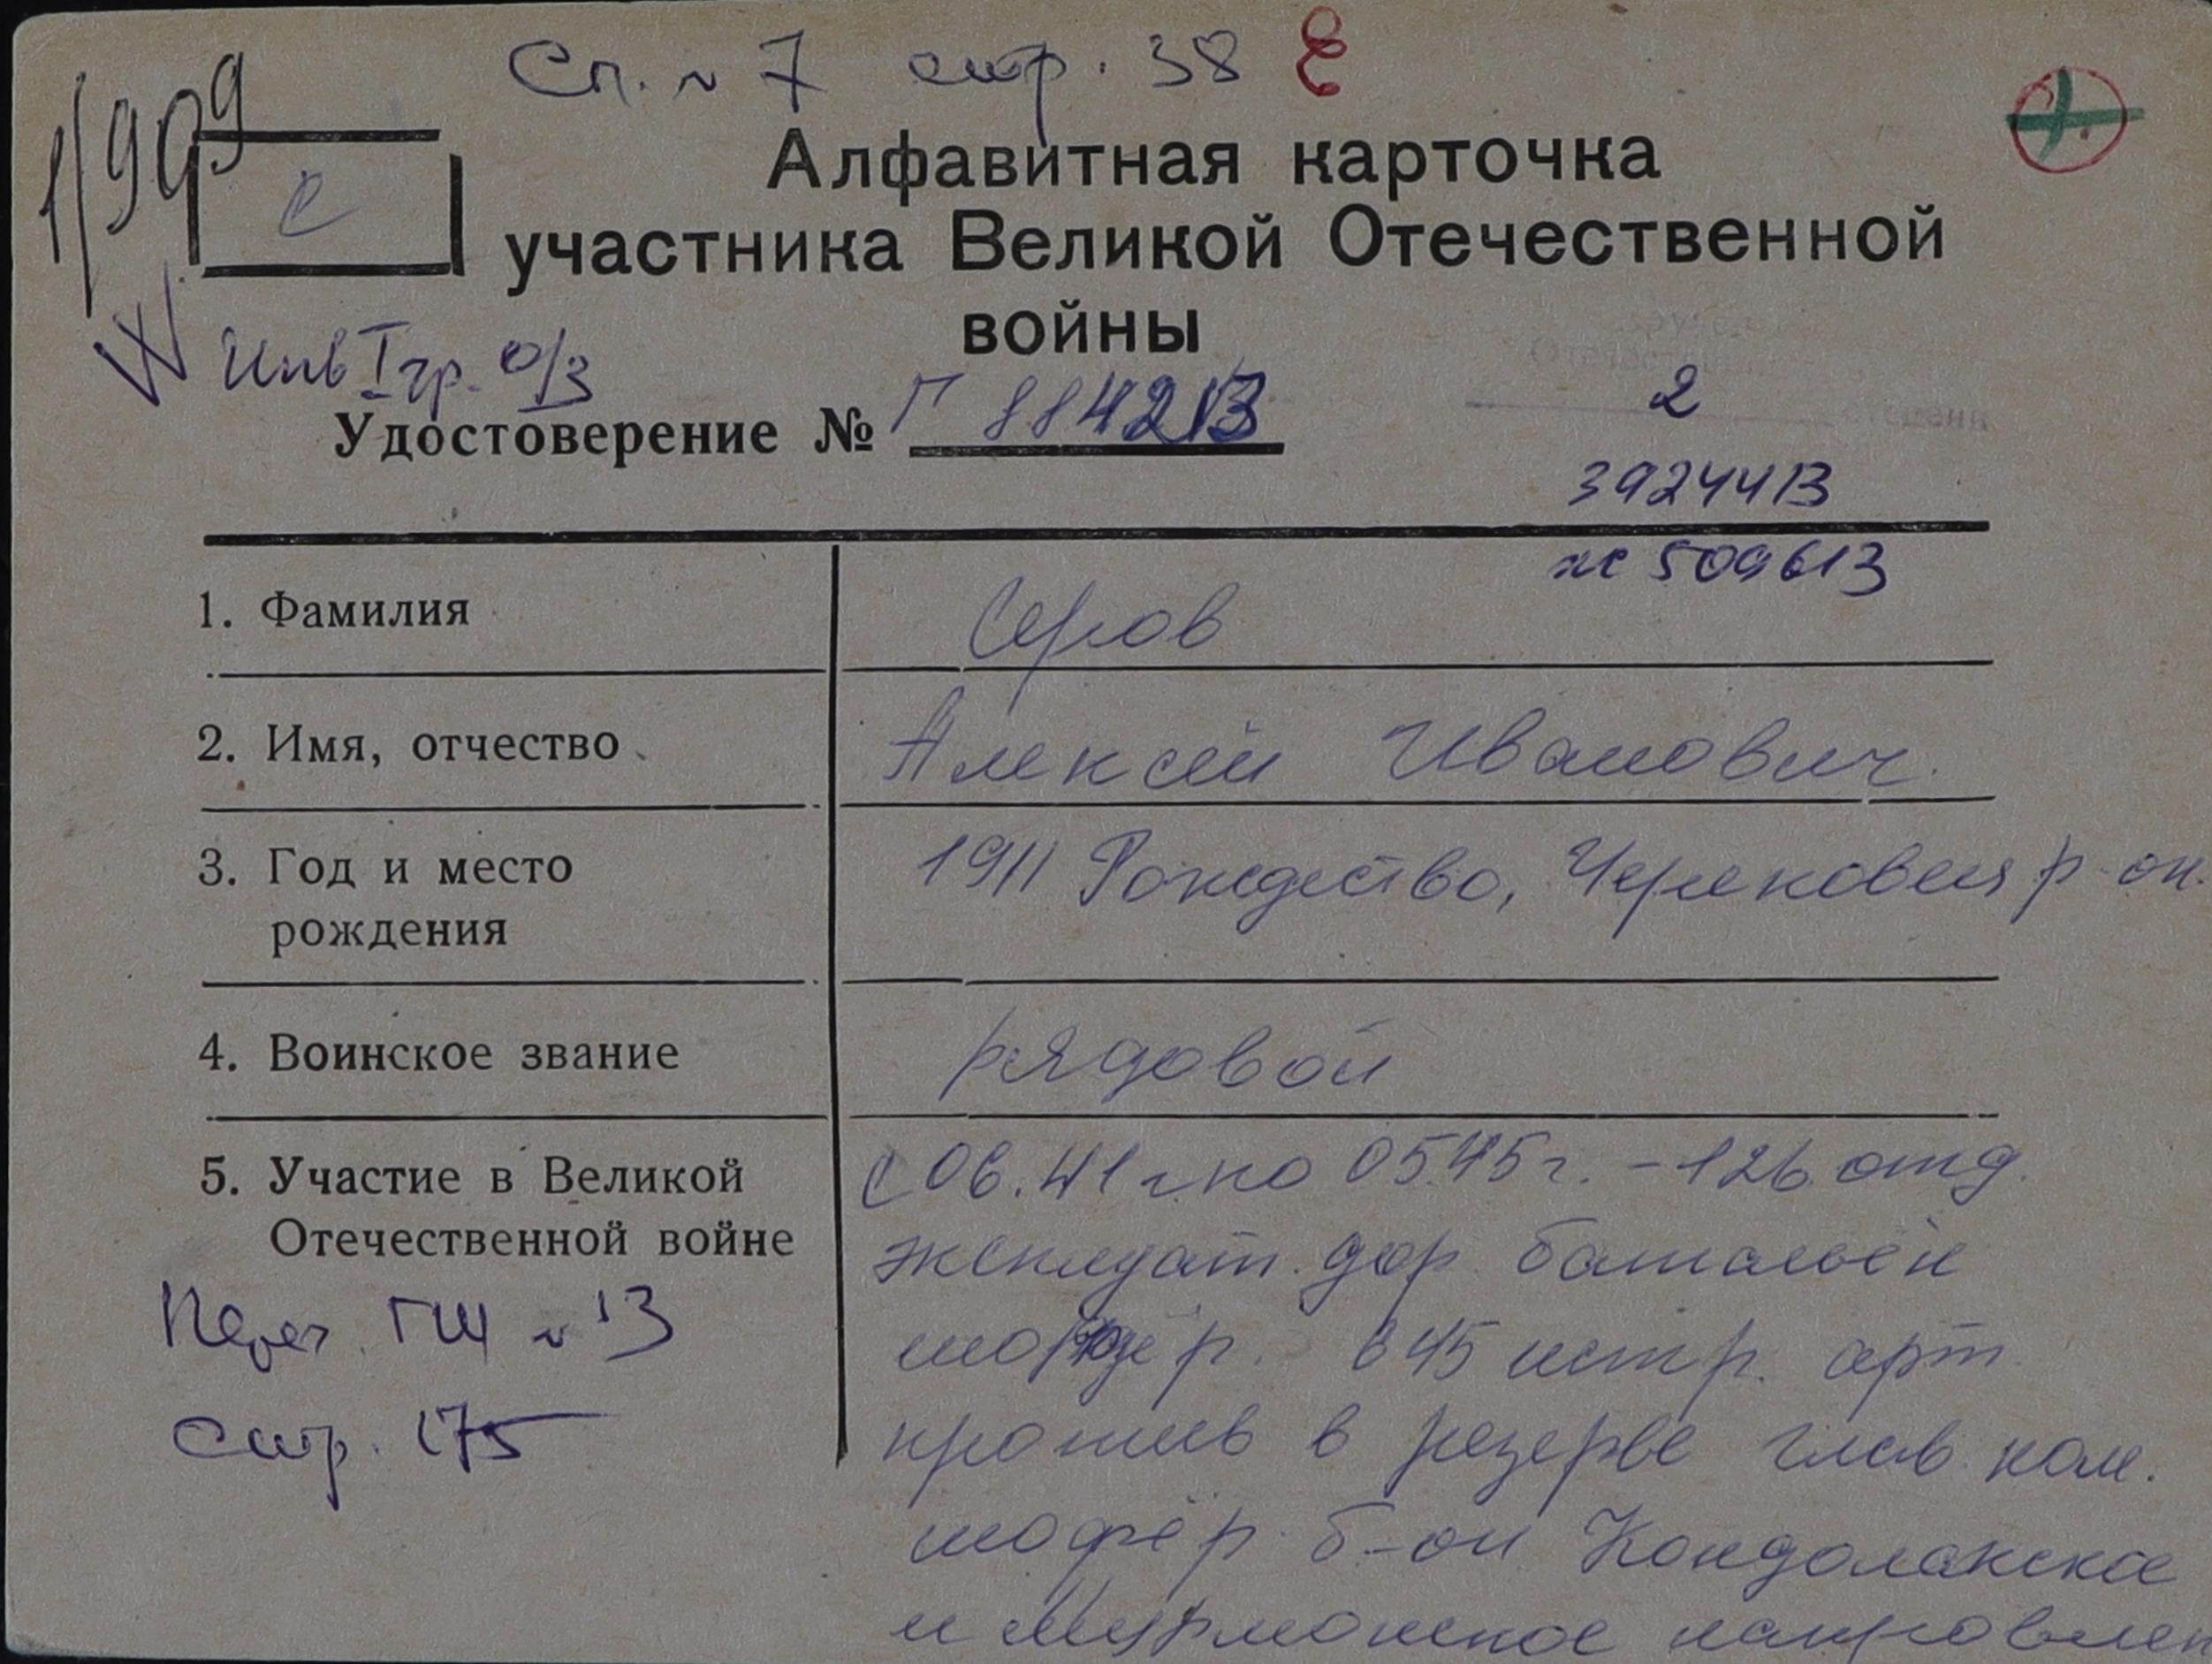 Сп. № 7 стр. 38
1/909
с
Алфавитная карточка
участника Великой Отечественной
войны
Инв I гр. о/з
Удостоверение № Г
2
392441В
ж 509613
1. Фамилия Серов
2. Имя, отчество Алексей Иванович.
3. Год и место рождения 1911 Рождество, р-он.
4. Воинское звание рядовой
5. Участие в Великой Отечественной войне с 06.41 г по 05.45 г. - 126 отд.
эксплуат. дор. батальон
шофер. в 45 истр. арт
против в резерве глав. ком.
шофёр. б-он Кондолакское
и Мурмонское направлен
Переч. ГШ № 13
стр. 175